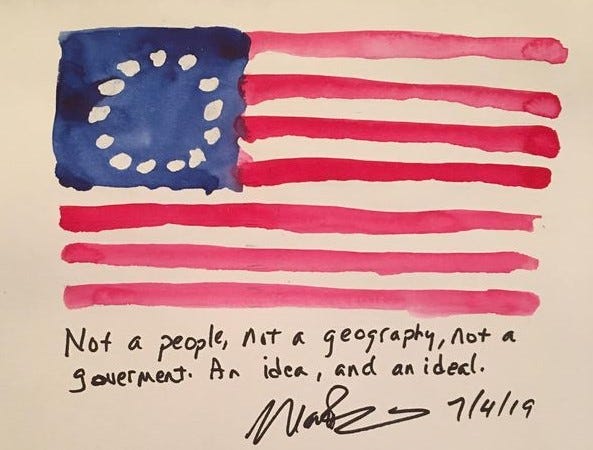 Not a people, not a geography, not a
goverment. An idea, and an ideal.
7/4/19